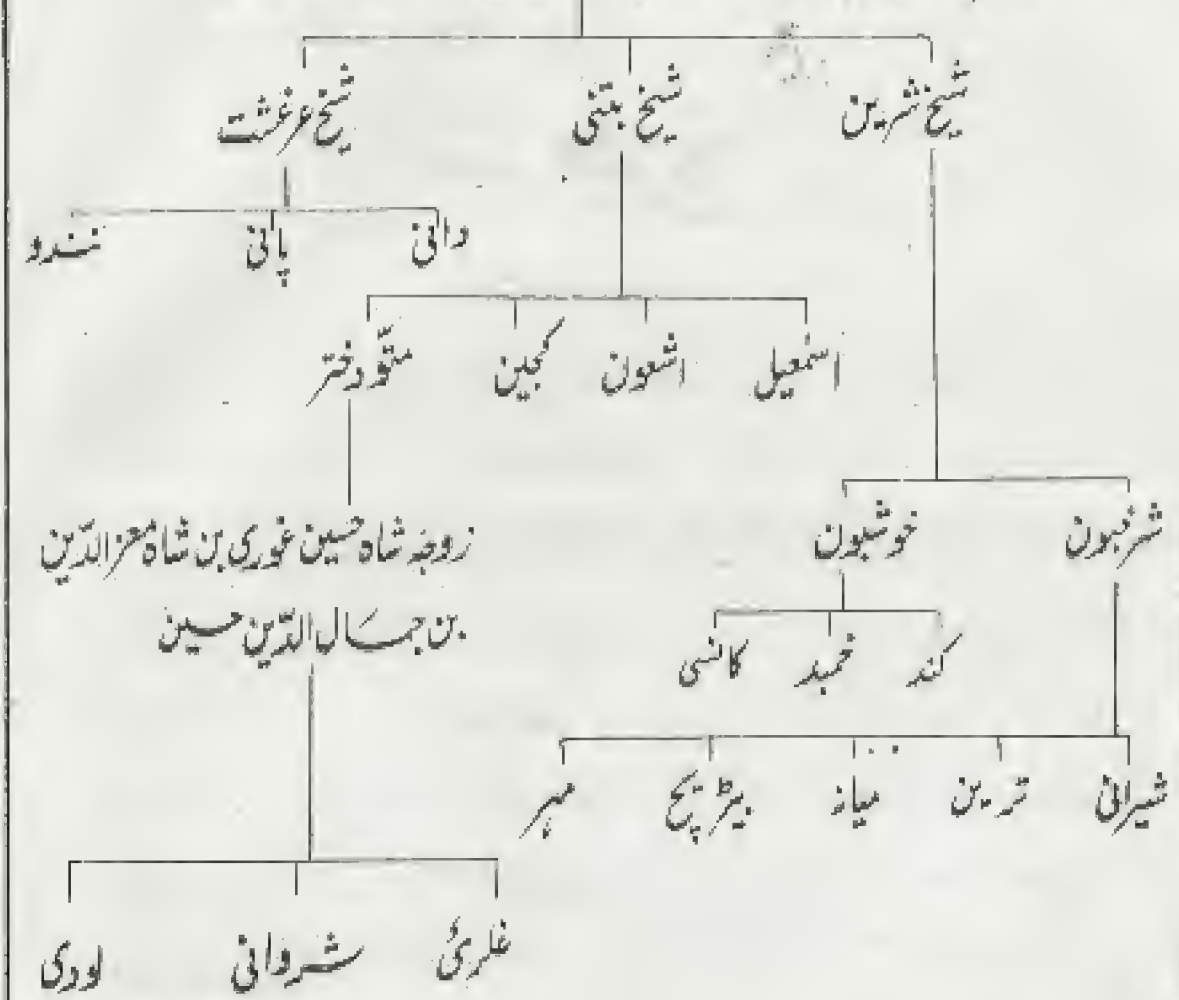 شیخ شرین شیخ بتنی شیخ غرغشت
دانی پانی نندو
اسمٰعیل اشعون کجین متّو دختر
شرخبون خوشبون
زوجہ شاہ حسین غوری بن شاہ معز الدّین
بن جمال الدّین حسین
کند خمبد کانسی
شیرانی ترین میانہ بیڑیچ مہر
غلزئ شروانی لودی